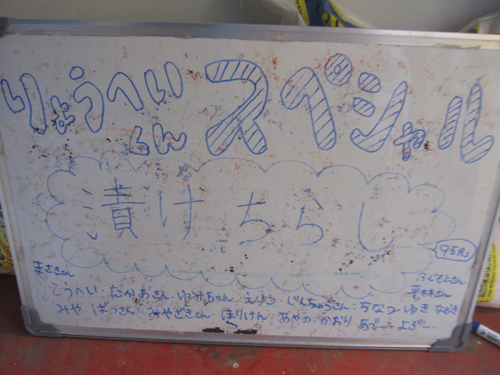 りょうへいくん スペシャル
漬けちらし
95Rs
まさきさん
こうへい たかあきさん ゆみちゃん えりっ じんちゃうさん ちなつ ゆき ながき
みや ばっさん みやざきさん ほりけん あやか かおり あづー よぎー